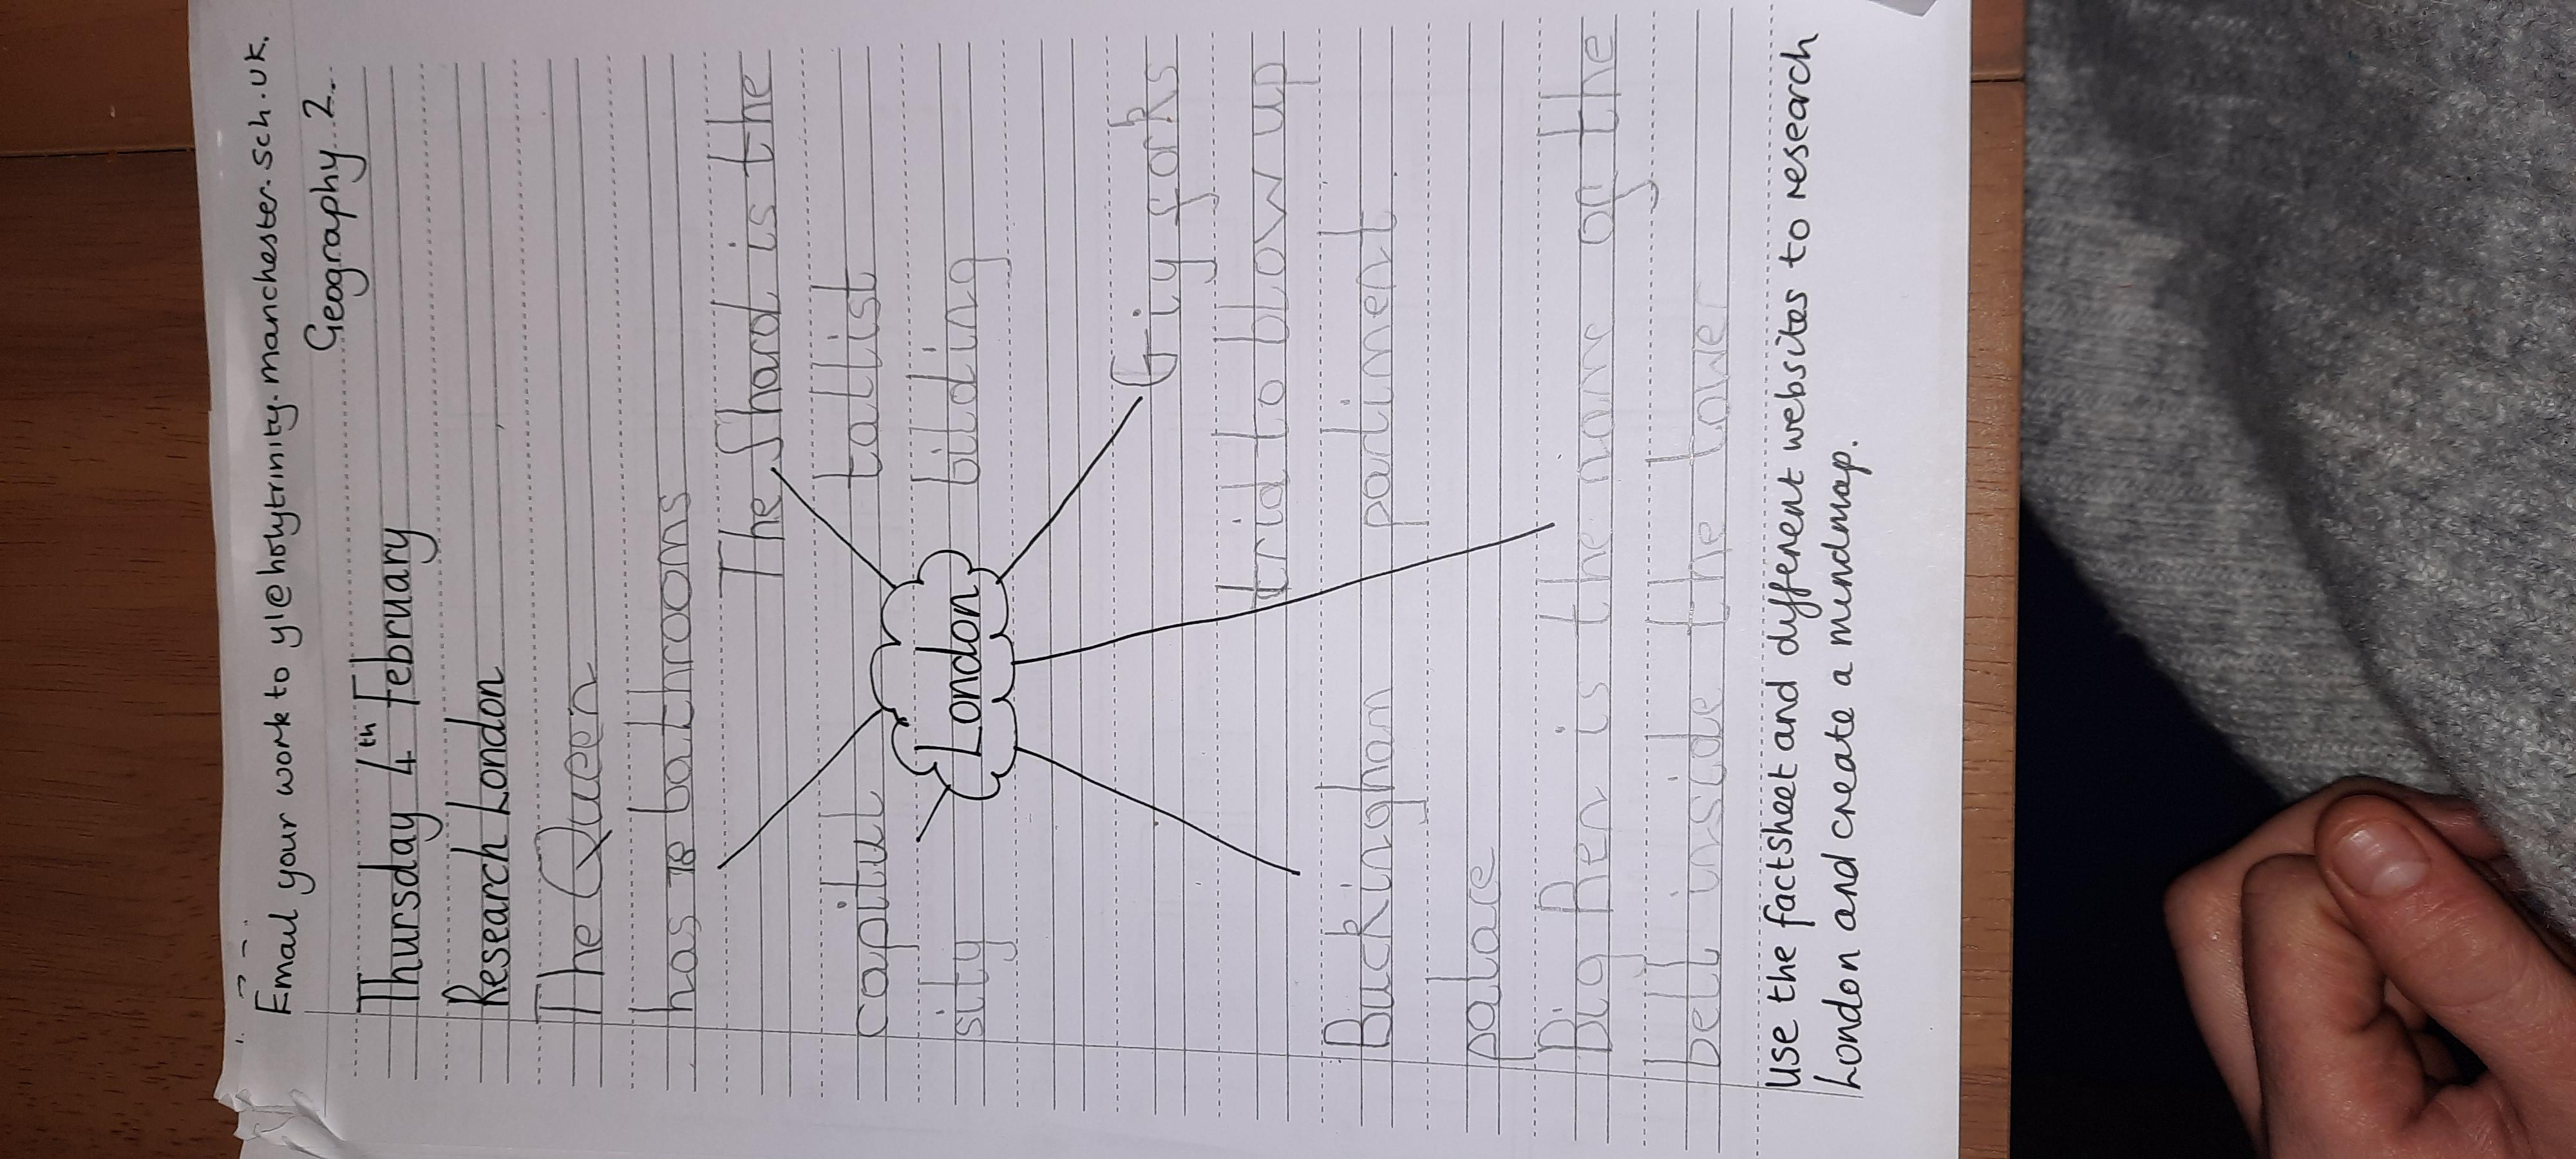 Email your work to y1@holytrinity.manchester.sch.uk.
Geography 2
Thursday 4th February
Research London
The Queen
has 78 bathrooms
The Shard is the
tallist
bilding
capitul
sity
London
Giy forks
trid to blow up
parliment
Buckinghan
palace
Big Ben is the name of the
bell inside the tower
Use the factsheet and different websites to research
London and create a mindmap.